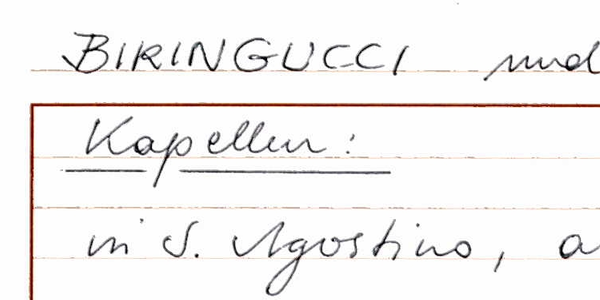 BIRINGUCCI und
Kapellen:
in S. Agostino, a